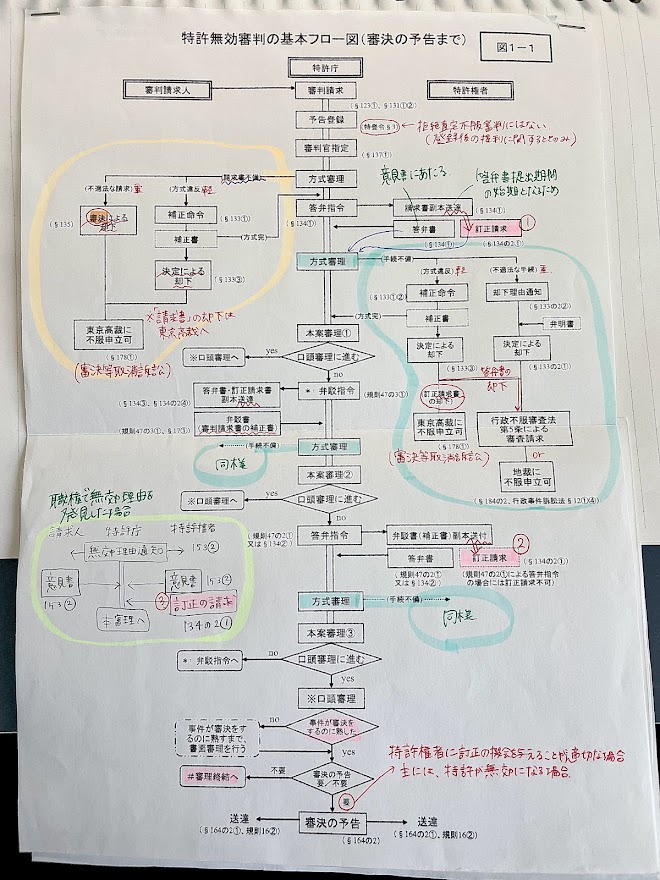 特許無効審判の基本フロー図(審決の予告まで)
図1-1
特許庁
審判請求人
審判請求
特許権者
(§123①、§131①②)
予告登録
(特登令§3)
拒絶査定不服審判にはない
(登録後の権利に関するときのみ)
審判官指定
(§137①)
請求書不備
方式審理
意見書にあたる
答弁書提出期間
の始期となるため
(不適法な請求) 重
(方式違反) 軽
(§135)
審決による
却下
補正命令
(§133①)
答弁指令
(§134①)
請求書副本送達
(§134①)
補正書
(方式完)
答弁書
(§134①)
訂正請求
①
(§134の2①)
決定による
却下
(§133③)
方式審理
(手続不備)
(方式違反) 軽
(不適法な手続) 重
(§133①②)
補正命令
却下理由通知
(§133の2②)
補正書
弁明書
(方式完)
※「請求書」の却下は
東京高裁へ
東京高裁に
不服申立可
(§178①)
(審決等取消訴訟)
本案審理①
決定による
却下
(§133③)
決定による
却下
(§133の2①)
答弁書の
却下
※口頭審理へ
yes
口頭審理に進む
no
(訂正請求書
の却下)
(§134③、§134の2④)
答弁書・訂正請求書
副本送達
*・弁駁指令
(規則47の3①)
東京高裁に
不服申立可
(§178①)
(審決等取消訴訟)
行政不服審査法
第5条による
審査請求
or
地裁に
不服申立可
(§184の2、行政事件訴訟法§12①④)
(規則47の3①、§17①)
弁駁書
(審判請求書の補正書)
(手続不備)
方式審理
同様
本案審理②
職権で無効理由を
発見した場合
※口頭審理へ
yes
口頭審理に進む
no
請求人
特許庁
特許権者
無効理由通知
153②
答弁指令
(規則47の2①
又は§134②)
弁駁書(補正書)副本送付
答弁書
(規則47の2①
又は§134②)
訂正請求
②
(§134の2①)
(規則47の2①による答弁指令
の場合には訂正請求不可)
意見書
153②
意見書
153②
③
訂正の請求
134の2①
本審理へ
方式審理
(手続不備)
同様
本案審理③
*・弁駁指令へ
no
口頭審理に進む
yes
※口頭審理
事件が審決をす
るのに熟すまで、
書面審理を行う
no
事件が審決を
するのに熟した
yes
特許権者に訂正の機会を与えることが適切な場合
主には、特許が無効になる場合
#審理終結へ
不要
審決の予告
要/不要
要
送達
(§164の2①、規則16②)
審決の予告
(§164の2)
送達
(§164の2①、規則16②)